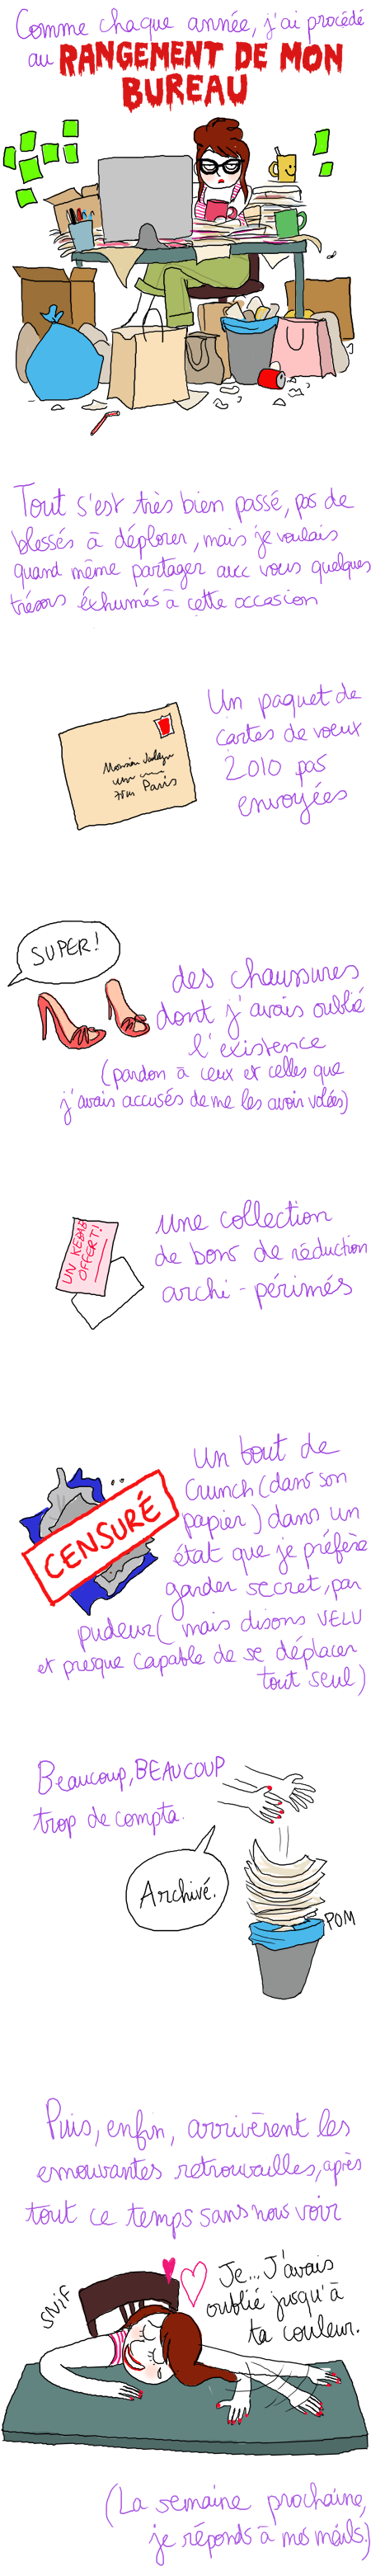 Comme chaque année, j'ai procédé
au RANGEMENT DE MON
BUREAU
Tout s'est très bien passé, pas de
blessés à déplorer, mais je voulais
quand même partager avec vous quelques
trésors éxhumés à cette occasion
Un paquet de
cartes de voeux
2010 pas
envoyées
Monsieur
Paris
SUPER!
des chaussures
dont j'avais oublié
l'existence
(pardon à ceux et celles que
j'avais accusés de me les avoir volées)
UN KEBAB
OFFERT!
une collection
de bons de réduction
archi-périmés
Un bout de
Crunch (dans son
papier) dans un
état que je préfère
garder secret, par
pudeur (mais disons VELU
et presque capable de se déplacer
tout seul)
CENSURÉ
Beaucoup, BEAUCOUP
trop de compta.
Archivé.
POM
Puis, enfin, arrivèrent les
emouvantes retrouvailles, après
tout ce temps sans nous voir
SNIF
Je... J'avais
oublié jusqu'à
ta couleur.
(La semaine prochaine,
je réponds à mes mails.)